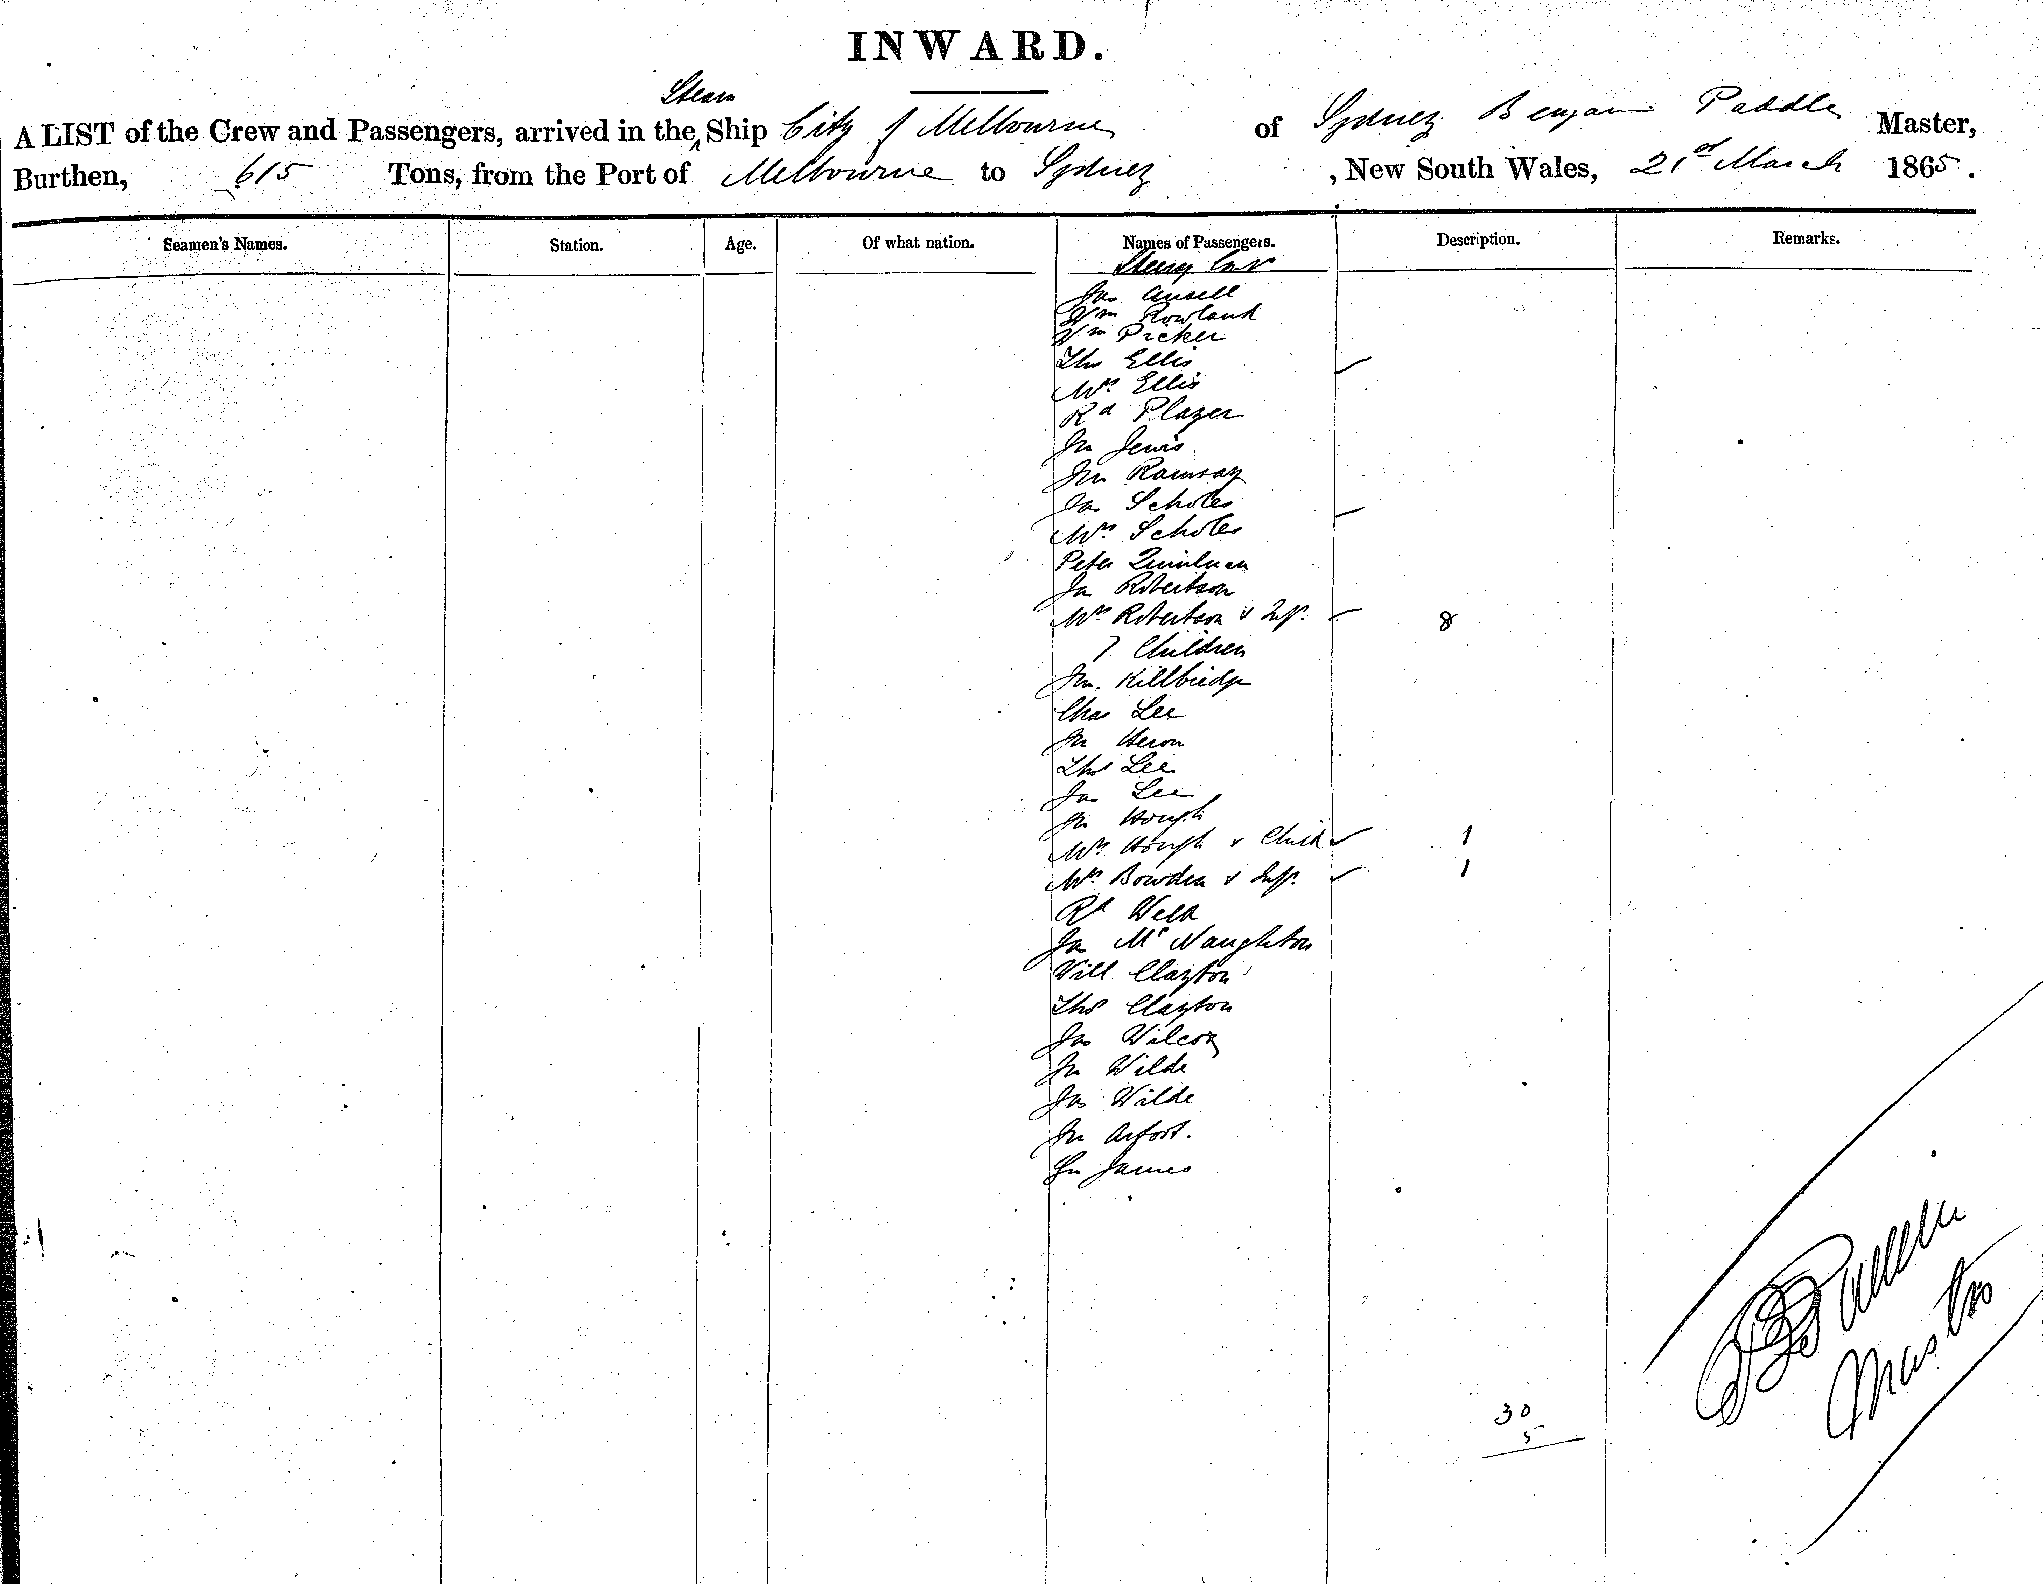 INWARD.
Steam
A LIST of the Crew and Passengers, arrived in the Ship City of Melbourne of Sydney Benjamin Paddle Master,
Burthen, 615 Tons, from the Port of Melbourne to Sydney, New South Wales, 21st March 1865.
Seamen's Names. Station. Age. Of what nation. Names of Passengers. Description. Remarks.
Jas Ansell
Wm Rowland
Wm Picker
Thos Ellis
Mrs Ellis
Rd Player
Jn Jewis
Jn Ramsay
Jas Scholes
Mrs Scholes
Peter
Jas Robertson
Mrs Robertson & Inft. 8
7 Children
Jn. Killbridge
Chas Lee
Jn Heron
Thos Lee
Jas Lee
Jn Hough
Mrs Hough & Child 1
Mrs Bowden & Inft. 1
Rd Webb
Jas McNaughton
Will Clayton
Thos Clayton
Jas Wilcox
Jn Wilde
Jas Wilde
Jn
Jn James
30
5
Master